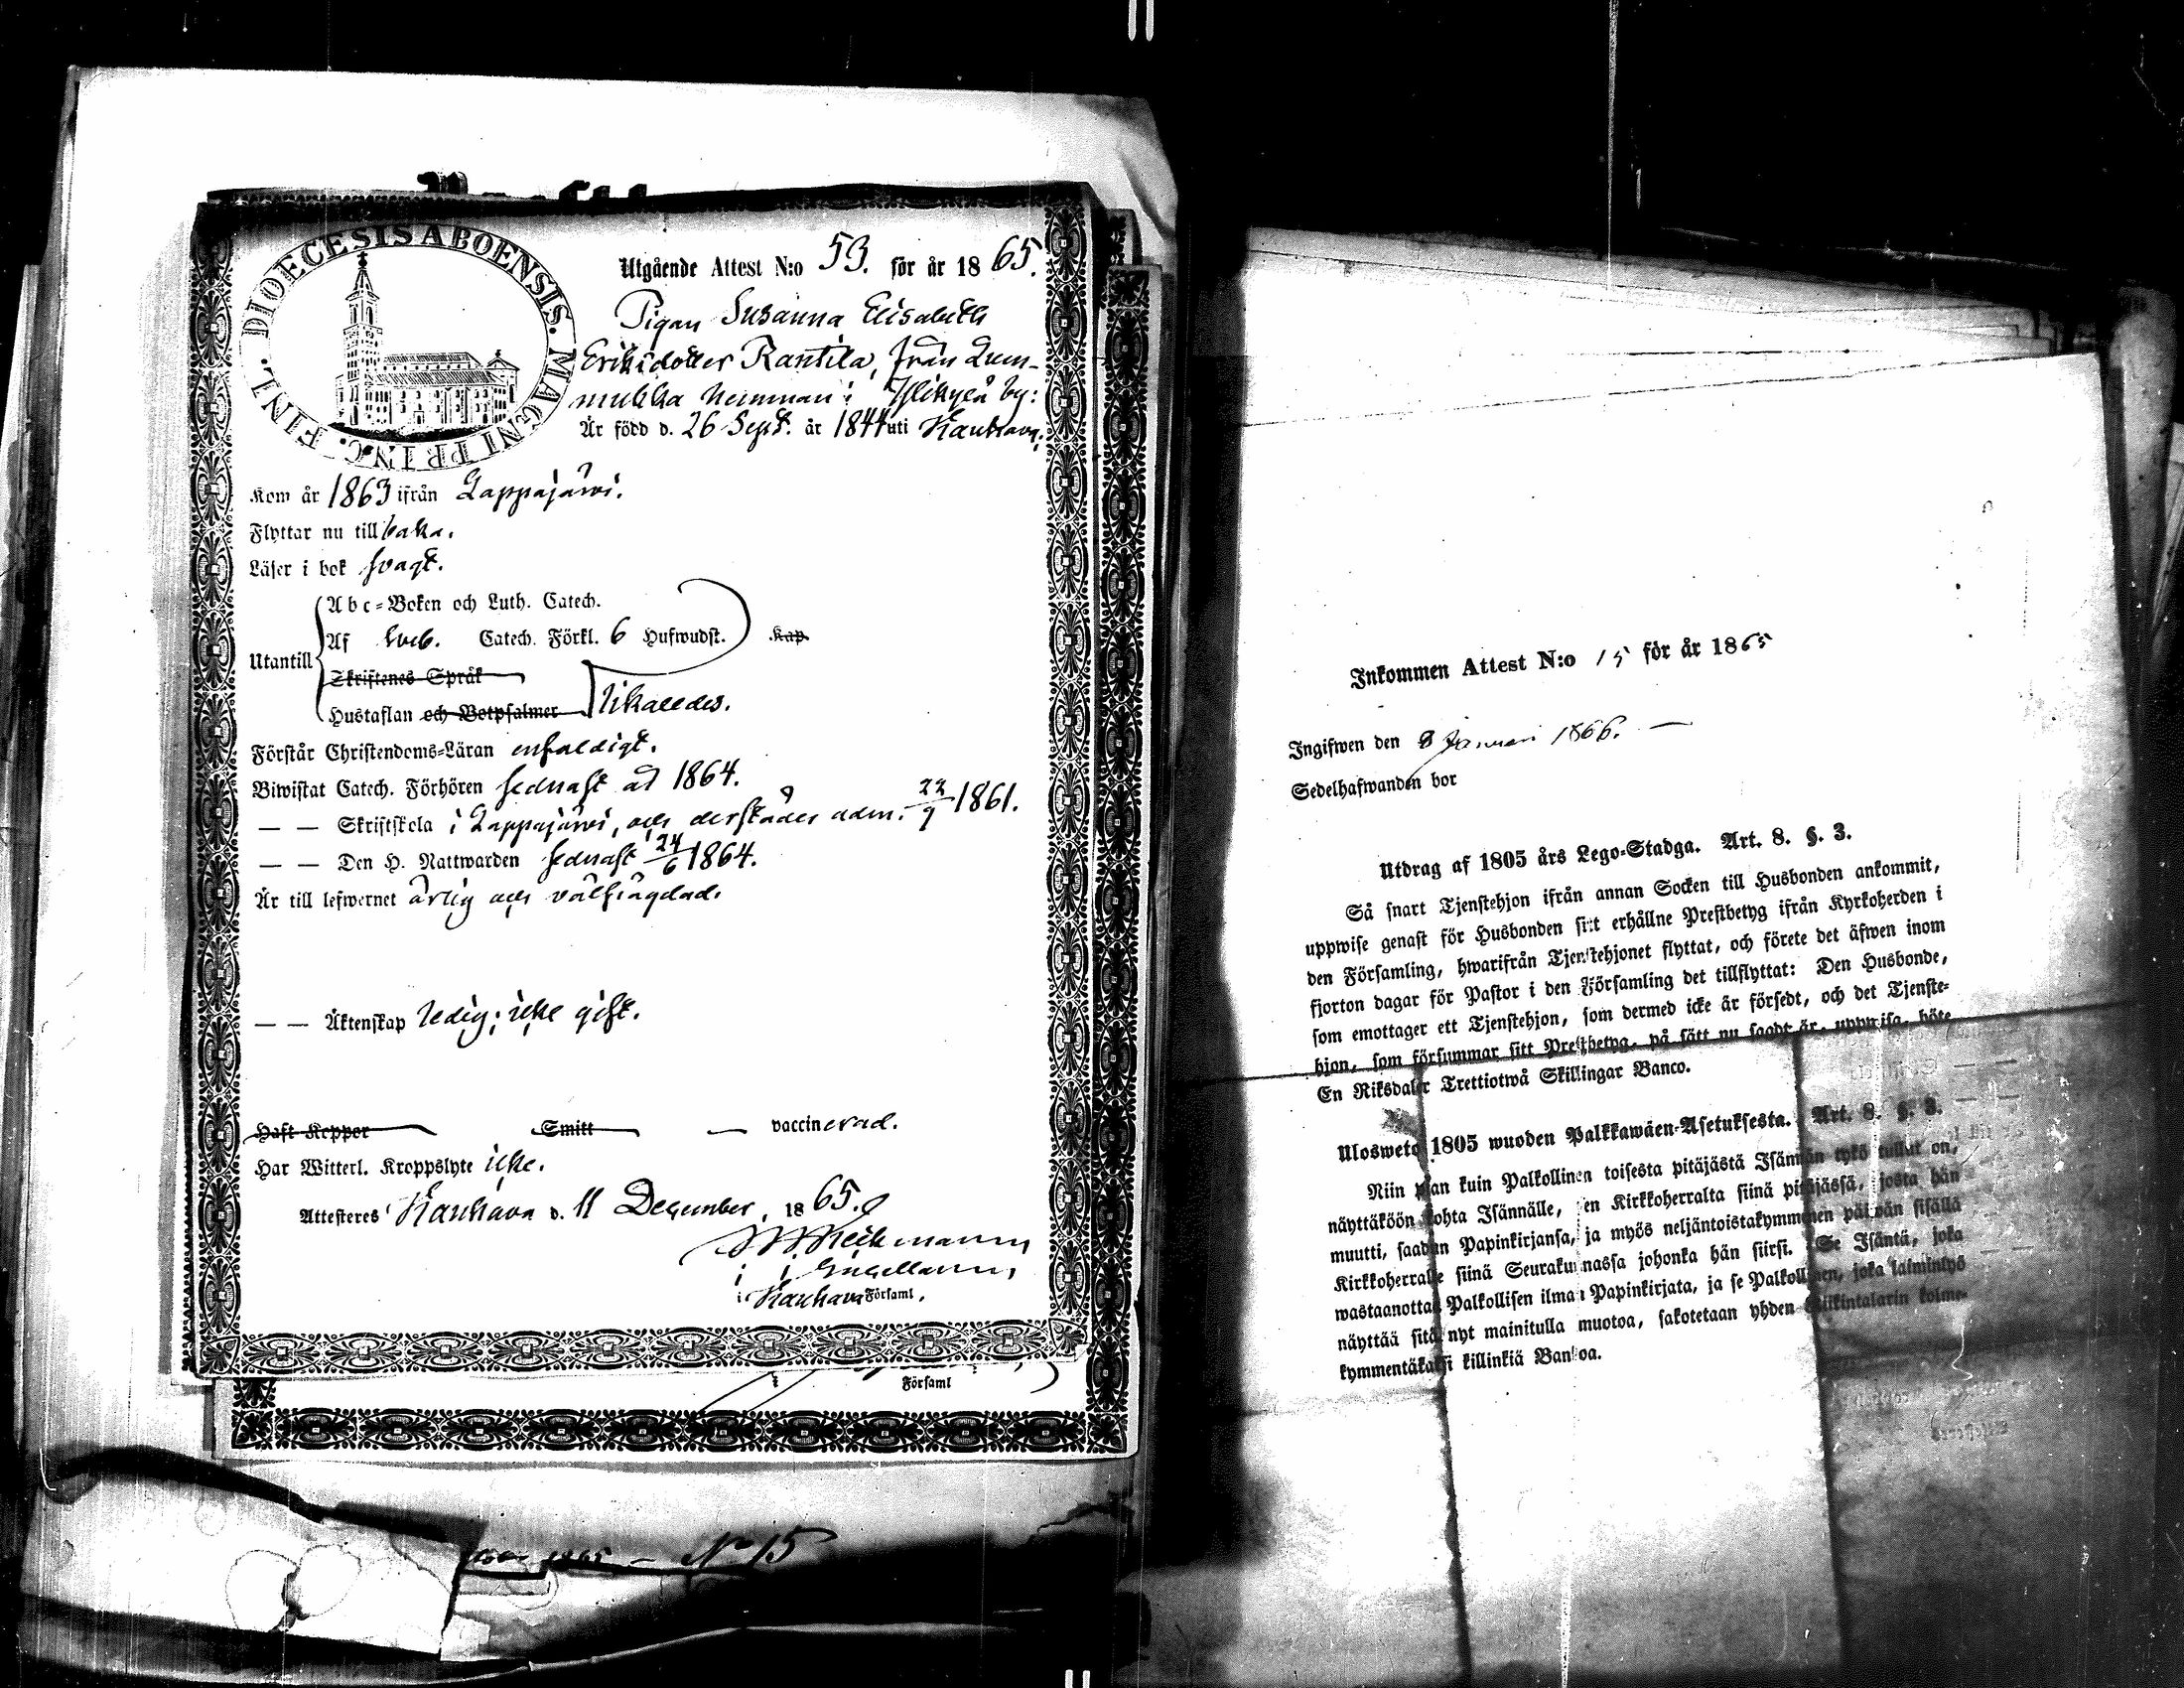 DIOECESIS ABOENSIS. MAGNI PRINC. FINL.
Utgående Attest N:o 53. för år 1865.
Pigan Susanna Elisabeth
Eriksdotter Rantila, från Lum-
mukka hemman i Ylikylä by:
Är född d. 26 Sept. år 1844 uti Kauhava.
Kom år 1863 ifrån Lappajärvi.
Flyttar nu tillbaka.
Läser i bok svagt.
Utantill
Abc-Boken och Luth. Catech.
Af Sveb. Catech. Förkl. 6 Hufwudst. Kap.
Skriftenes Språk
Hustaflan och Botpsalmer likaledes.
Förstår Christendoms-Läran enfaldigt.
Biwistat Catech. Förhören sednast år 1864.
— — Skriftskola i Lappajärvi, och derstädes adm. 22/9 1861.
— — Den H. Nattwarden sednast 24/6 1864.
Är till lefwernet ärlig och välfrägdad.
— — Äktenskap ledig; icke gift.
Haft Koppor Smitt — vaccinerad.
Har Witterl. Kroppslyte icke.
Attesteres Kauhava d. 11 December, 1865.
i Kauhava Församl.
Församl
1865 — No 15
Inkommen Attest N:o 15 för år 1865
Ingifwen den 8 Januari 1866. —
Sedelhafwanden bor
Utdrag af 1805 års Lego-Stadga. Art. 8. §. 3.
Så snart Tjenstehjon ifrån annan Socken till Husbonden ankommit,
uppwise genast för Husbonden sitt erhållne Prestbetyg ifrån Kyrkoherden i
den Församling, hwarifrån Tjenstehjonet flyttat, och förete det äfwen inom
fjorton dagar för Pastor i den Församling det tillflyttat: Den Husbonde,
som emottager ett Tjenstehjon, som dermed icke är försedt, och det Tjenste-
hjon, som försummar sitt Prestbetyg, på sätt nu sagdt är, uppwisa, böte
En Riksdaler Trettiotwå Skillingar Banco.
Ulosweto 1805 wuoden Palkkawäen-Asetuksesta. Art. 8. §. 3.
Niin pian kuin Palkollinen toisesta pitäjästä Isännän tykö tullut on,
näyttäköön kohta Isännälle, sen Kirkkoherralta siinä pitäjässä, josta hän
muutti, saadun Papinkirjansa, ja myös neljäntoistakymmenen päiwän sisällä
Kirkkoherralle siinä Seurakunnassa johonka hän siirsi. Se Isäntä, joka
wastaanottaa Palkollisen ilman Papinkirjata, ja se Palkollinen, joka laiminlyö
näyttää sitä nyt mainitulla muotoa, sakotetaan yhden Riikintalarin kolme-
kymmentäkaksi killinkiä Bankoa.